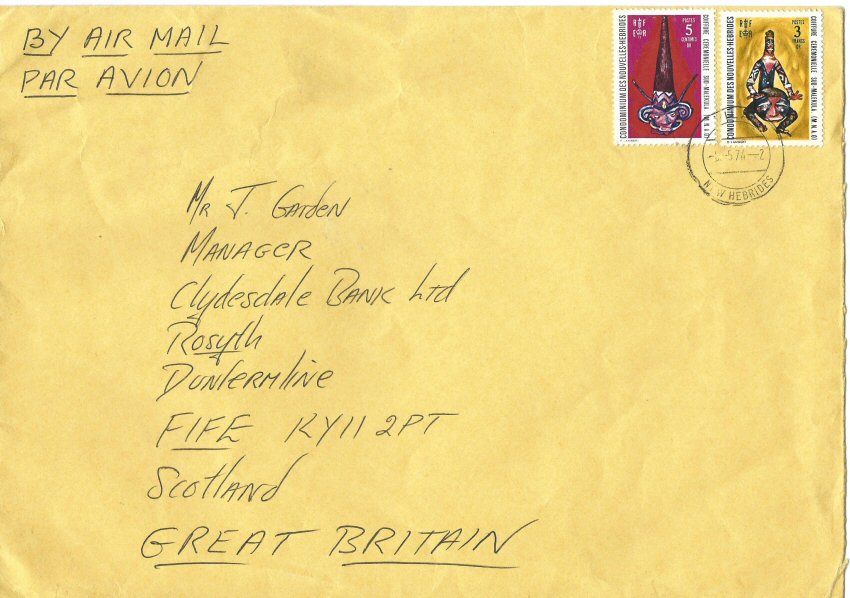 BY AIR MAIL
PAR AVION
CONDOMINIUM DES NOUVELLES-HEBRIDES
RF
ER
POSTES
5
CENTIMES
OR
COIFFURE CEREMONIELLE SUD-MALEKULA (M.N.A.O)
CONDOMINIUM DES NOUVELLES-HEBRIDES
RF
ER
POSTES
3
FRANCS
OR
COIFFURE CEREMONIELLE SUD-MALEKULA (M.N.A.O)
NEW HEBRIDES
Mr J. Garden
MANAGER
Clydesdale BANK Ltd
Rosyth
Dunfermline
FIFE KY11 2PT
Scotland
GREAT BRITAIN